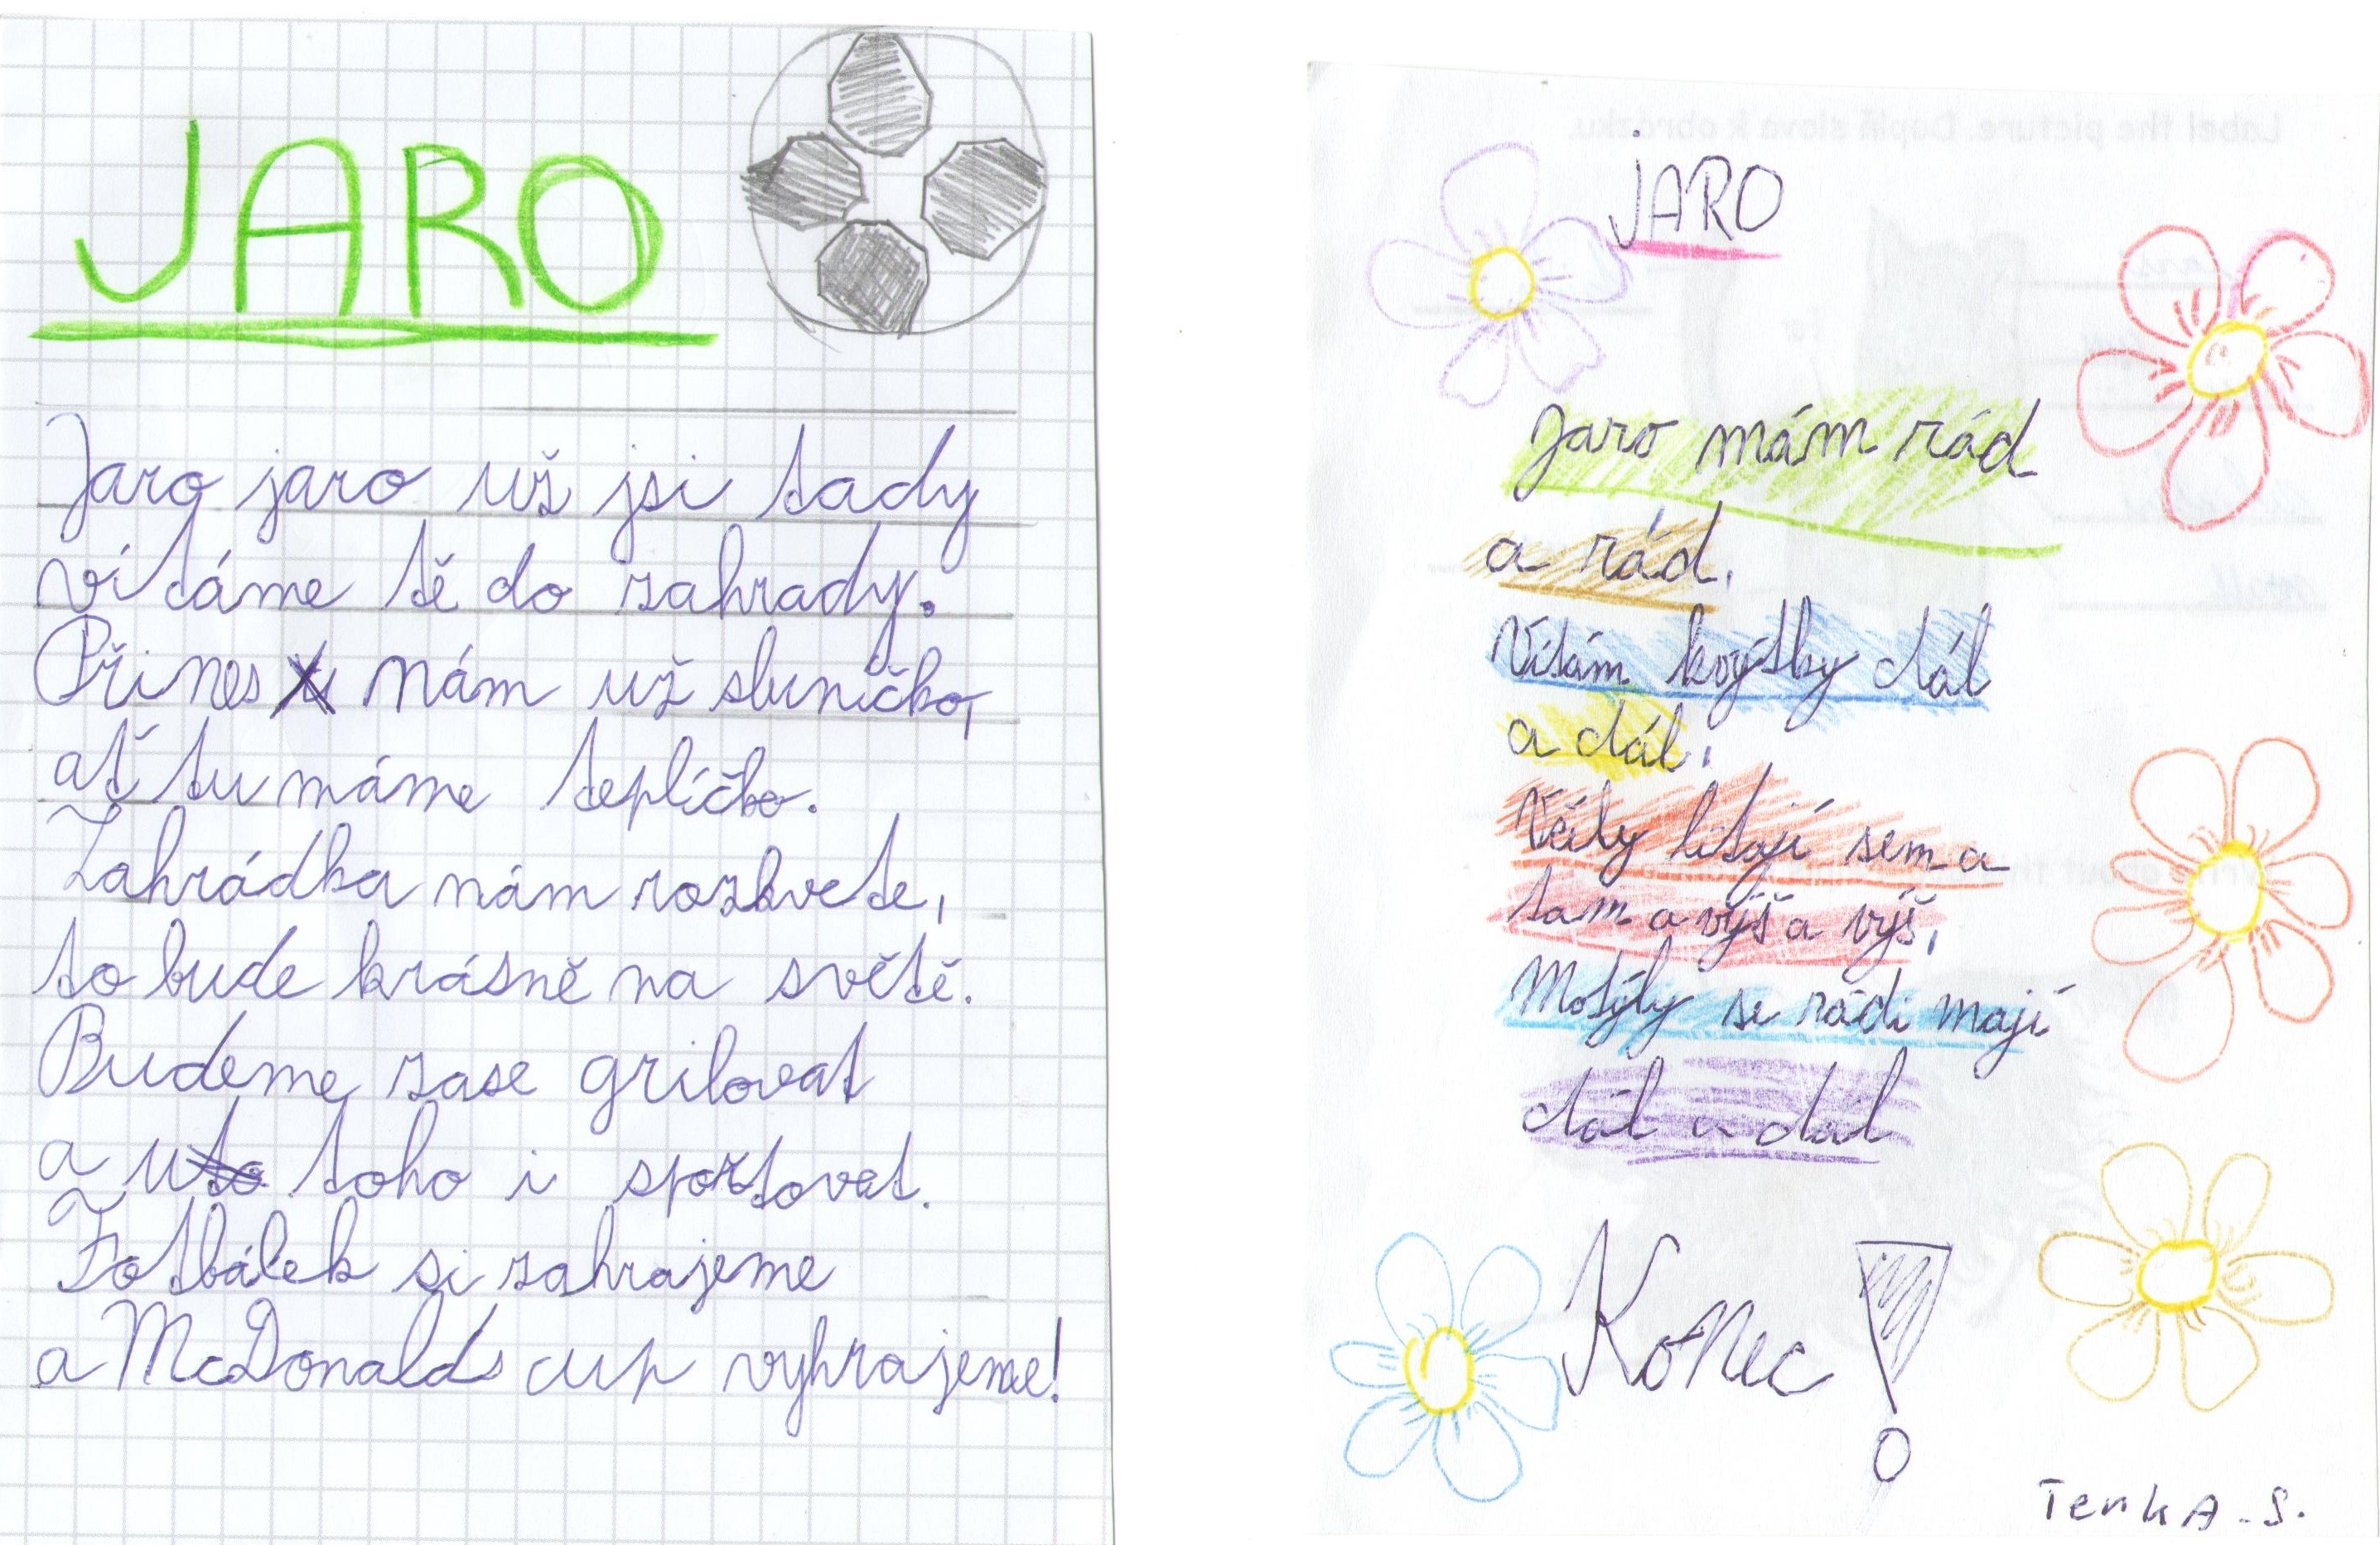 JARO
Jaro jaro už jsi tady
vítáme tě do zahrady.
Přines nám už sluníčko,
ať tu máme teplíčko.
Zahrádka nám rozkvete,
to bude krásně na světě.
Budeme zase grilovat
a u toho i sportovat.
Fotbálek si zahrajeme
a McDonalds cup vyhrajeme!
JARO
Jaro mám rád
a rád,
Vítám kvýtky dál
a dál,
Včely lítají sem a
tam a výš a výš,
Motýly se rádi mají
dál a dál
Konec!
Label the picture. Doplň slova k obrázku.
TenkA.S.